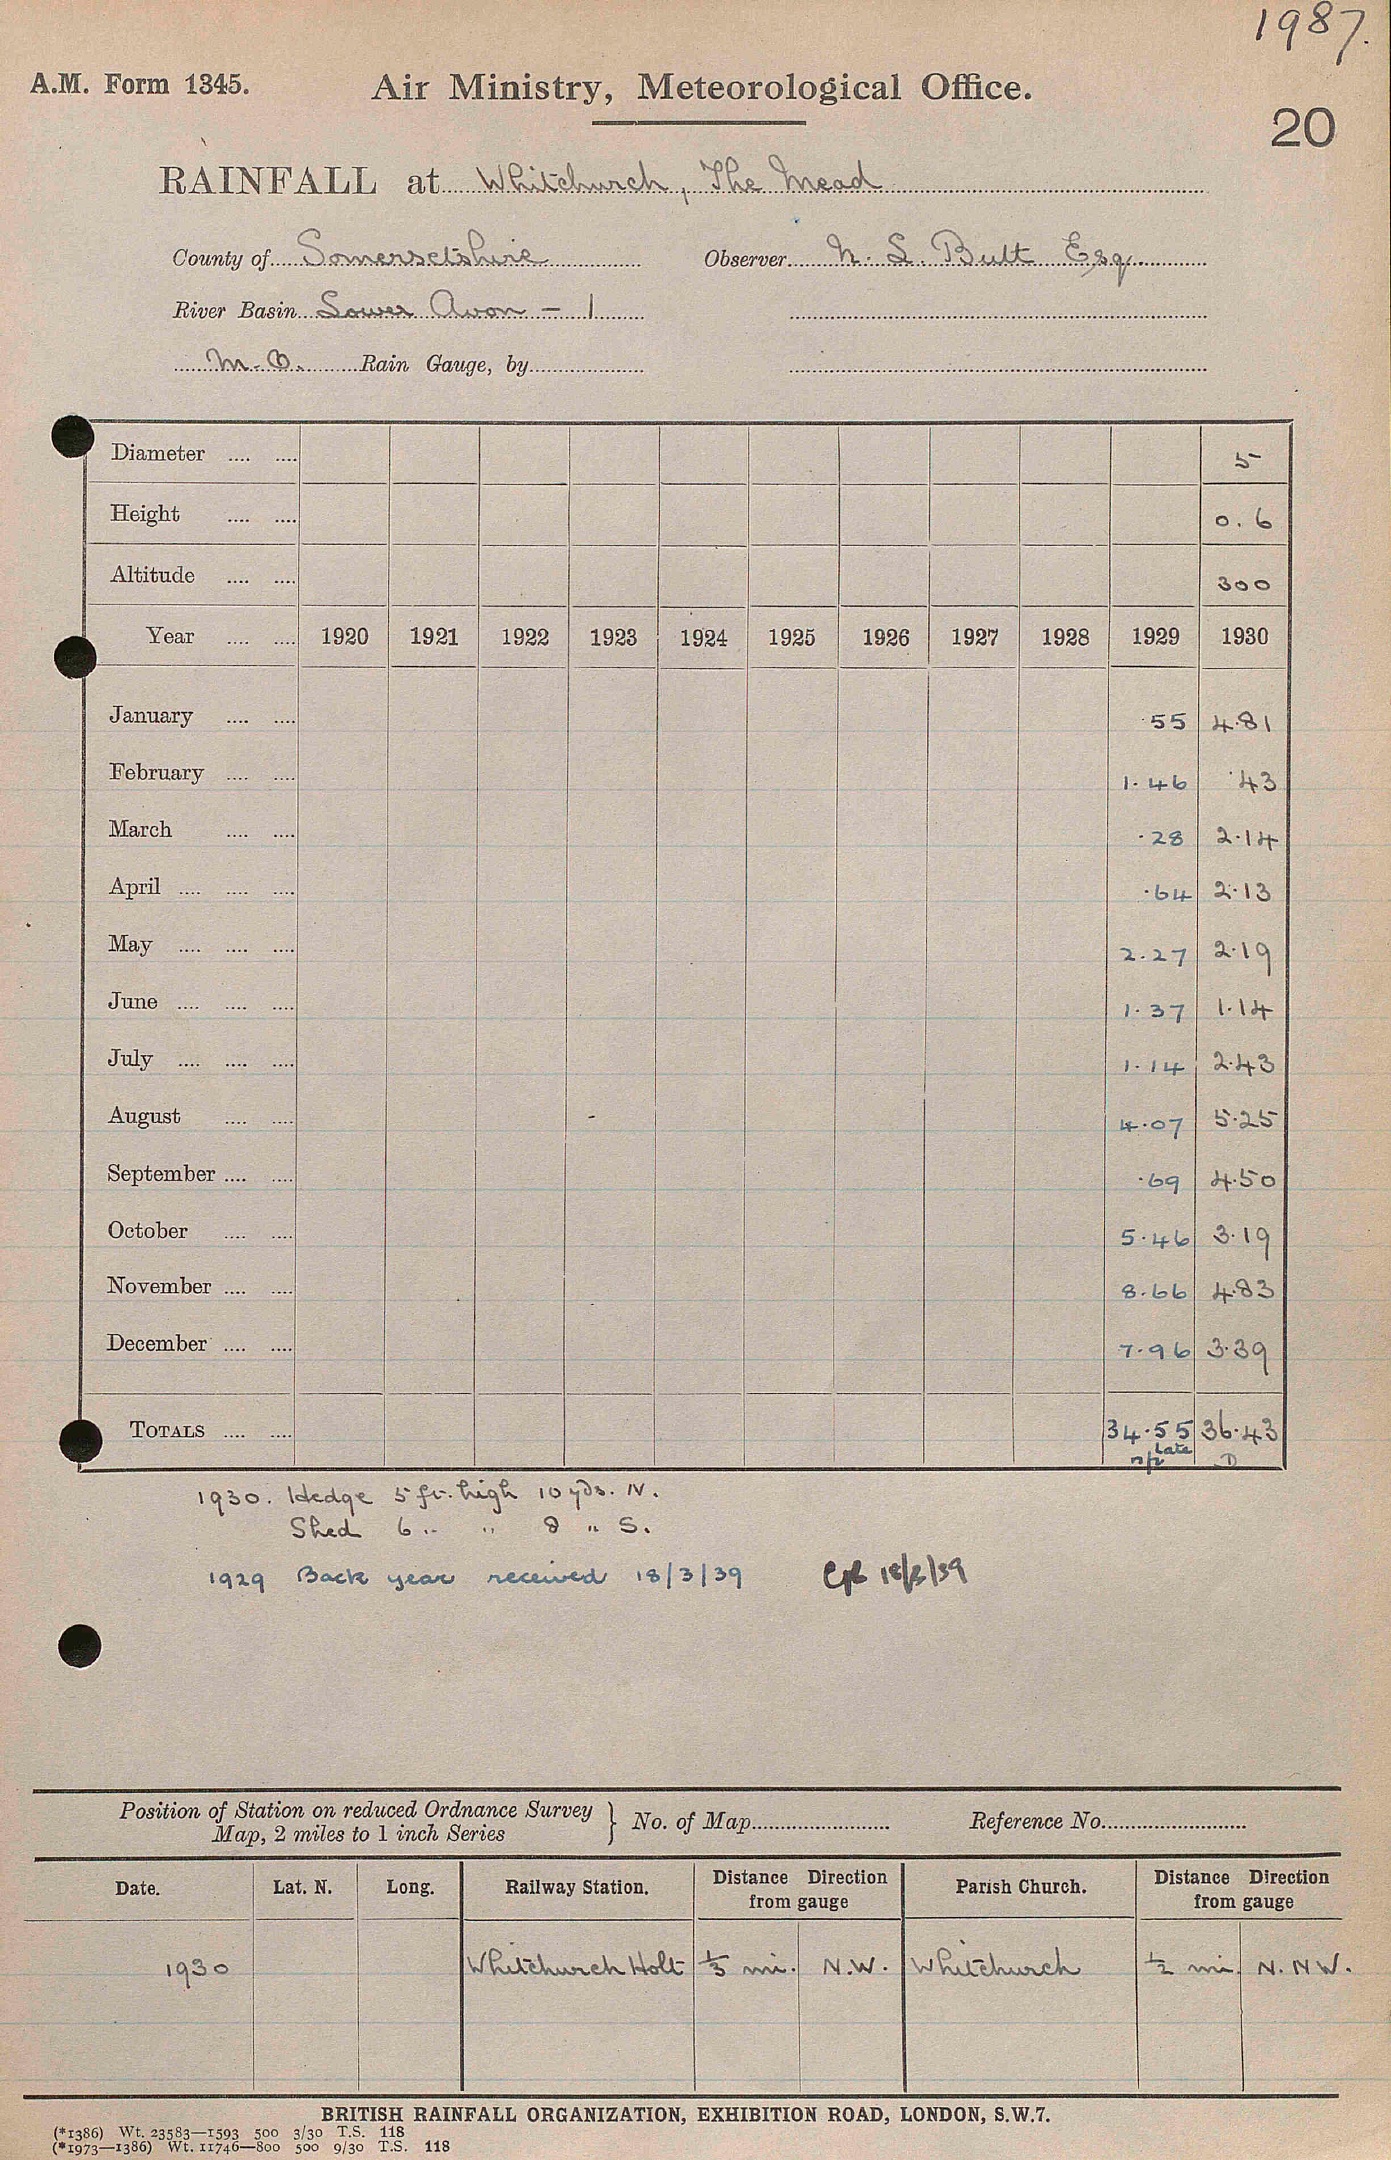 1987.
A.M. Form 1345. Air Ministry, Meteorological Office.
20
RAINFALL at Whitchurch, The Mead
County of Somersetshire Observer N. L. Butt Esq.
River Basin Lower Avon - 1
M.O. Rain Gauge, by
Diameter .... .... 5
Height .... .... 0.6
Altitude .... .... 300
Year .... .... 1920 1921 1922 1923 1924 1925 1926 1927 1928 1929 1930
January .... .... ·55 4·81
February .... .... 1·46 ·43
March .... .... ·28 2·14
April .... .... .... ·64 2·13
May .... .... .... 2·27 2·19
June .... .... .... 1·37 1·14
July .... .... .... 1·14 2·43
August .... .... 4·07 5·25
September .... .... ·69 4·50
October .... .... 5·46 3·19
November .... .... 8·66 4·83
December .... .... 7·96 3·39
TOTALS .... .... 34·55 36·43
late
n/p D
1930. Hedge 5 ft. high 10 yds. N.
Shed 6 " " 8 " S.
1929 Back year received 18/3/39 18/3/39
Position of Station on reduced Ordnance Survey
Map, 2 miles to 1 inch Series } No. of Map Reference No.
Date. Lat. N. Long. Railway Station. Distance Direction from gauge Parish Church. Distance Direction from gauge
1930 Whitchurch Holt 1/3 mi. N.W. Whitchurch 1/2 mi. N.N.W.
BRITISH RAINFALL ORGANIZATION, EXHIBITION ROAD, LONDON, S.W.7.
(*1386) Wt. 23583—1593 500 3/30 T.S. 118
(*1973—1386) Wt. 11746—800 500 9/30 T.S. 118